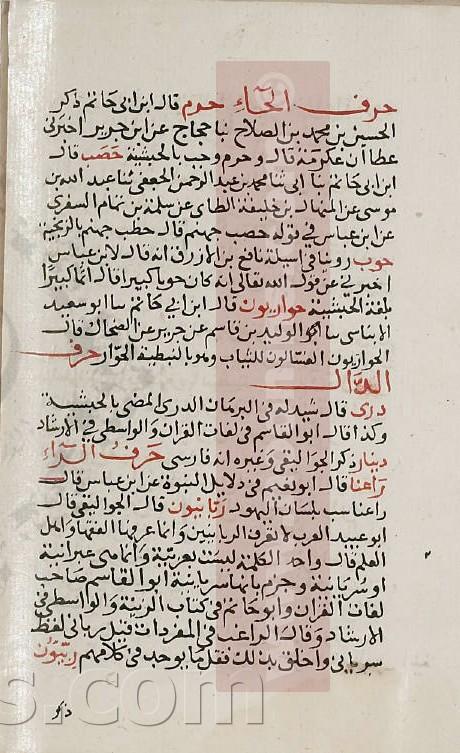 حرف الحاء حرم قال ابن ابي حاتم ذكر
الحسين بن محمد بن الصلاح نبا حجاج عن ابن جرير اخبرني
عطا ان عكرمة قال وحرم وجب بالحبشية حصب قال
ابن ابي حاتم نبا ابي ثنا محمد بن عبد الرحمن الجعفي ثنا عبد الله بن
موسى عن المنهال بن خليفة الطاي عن سلمة بن تمام السفري
عن ابن عباس في قوله حصب جهنم قال حطب جهنم بالزنجية
حوب روينا في اسيلة نافع بن الازرق انه قال لابن عباس
اخبرني عن قول الله تعالى انه كان حوبا كبيرا قال اثما كبيرا
بلغة الحبشية حواريون قال ابن ابي حاتم سا ابو سعيد
سا ابو الوليد بن قاسم عن جرير عن الضحاك قال
الحواريون الغسالون للثياب وهو بالنبطية الحوار حرف
الدال
دري قال شيدله في البرهان الدري المضي بالحبشية
وكذا قال ابو القاسم في لغات القران والواسطي في الارشاد
دينار ذكر الجواليقي وغيره انه فارسي حرف الراء
راعنا قال ابو نعيم في دلايل النبوة عن ابن عباس قال
راعنا سب بلسان اليهود ربانيون قال الجواليقي قال
ابو عبيد العرب لا تعرف الربانيين وانما عرفها الفقها واهل
العلم قال واحد الكلمة ليست بعربية وانما هي عبرانية
او سريانية وجزم بانها سريانية ابو القاسم صاحب
لغات القران وابو حاتم في كتاب الزينة والواسطي في
الارشاد وقال الراغب في المفردات قيل رباني لفظ
سرياني واخلق بذلك فقل ما يوجد في كلامهم ربيون
ذكر
s.com